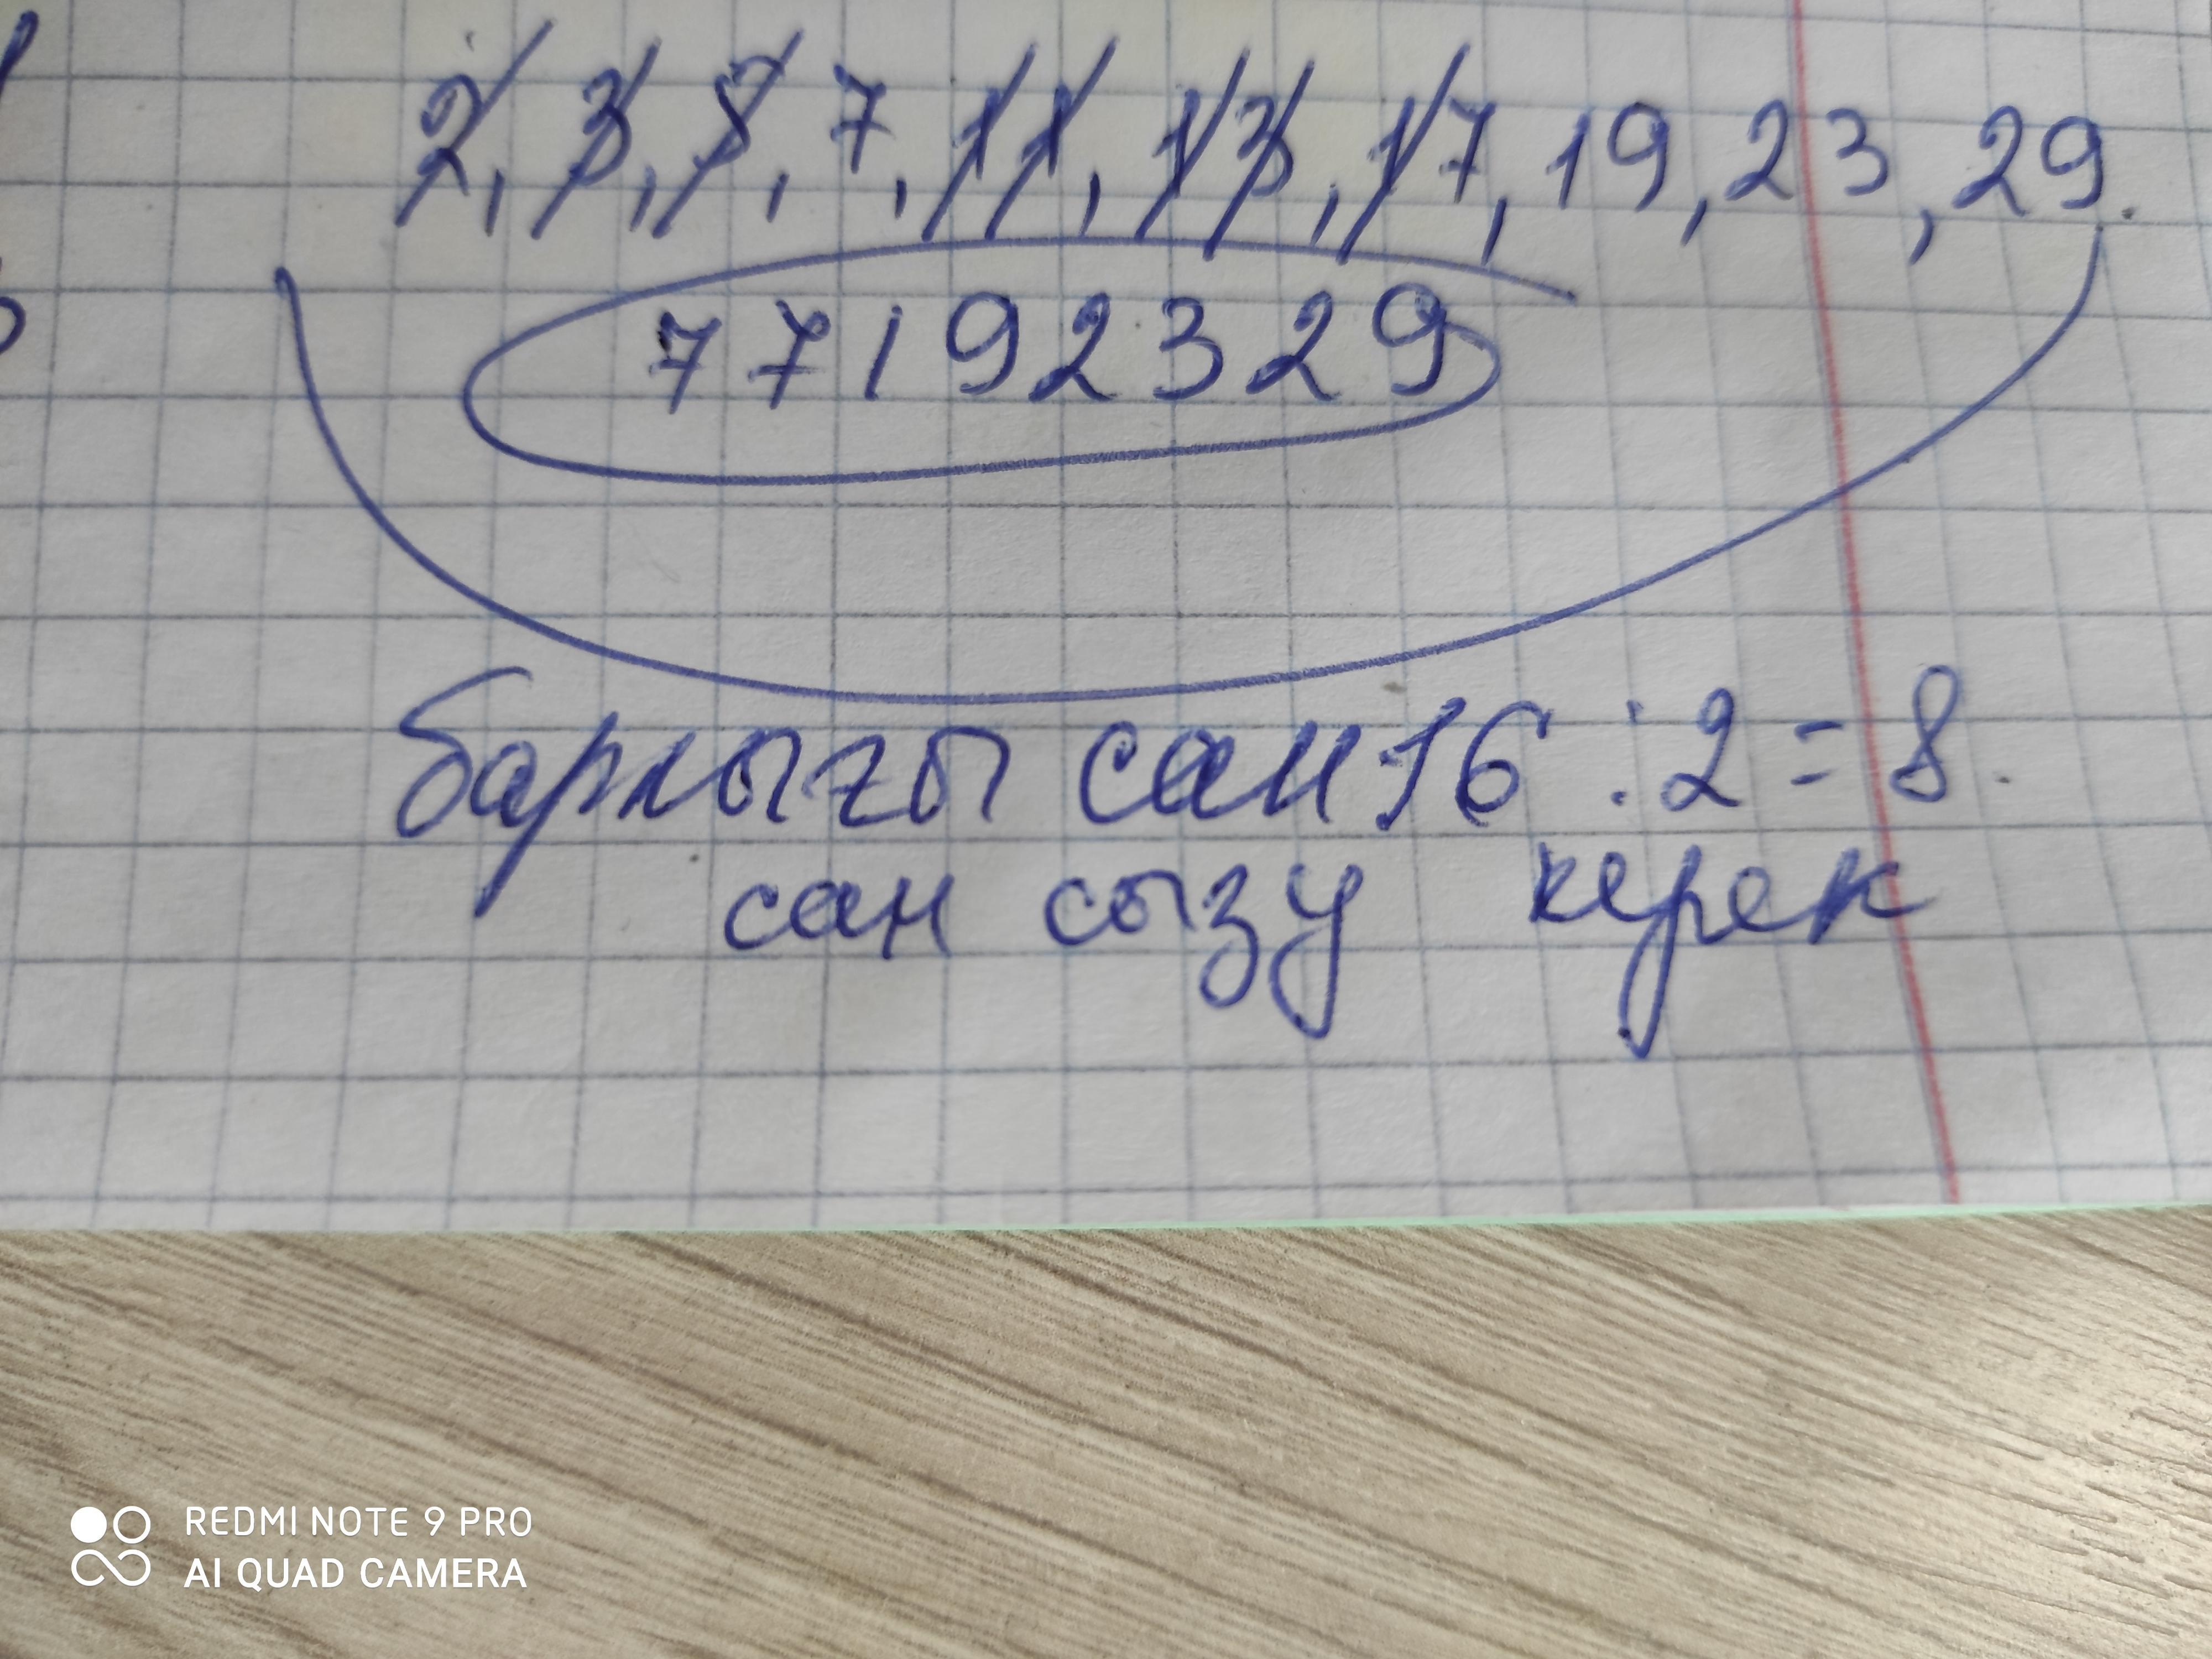 2, 3, 5, 7, 11, 13, 17, 19, 23, 29.
77192329
барлығы сан 16 : 2 = 8.
сан сызу керек
REDMI NOTE 9 PRO
AI QUAD CAMERA